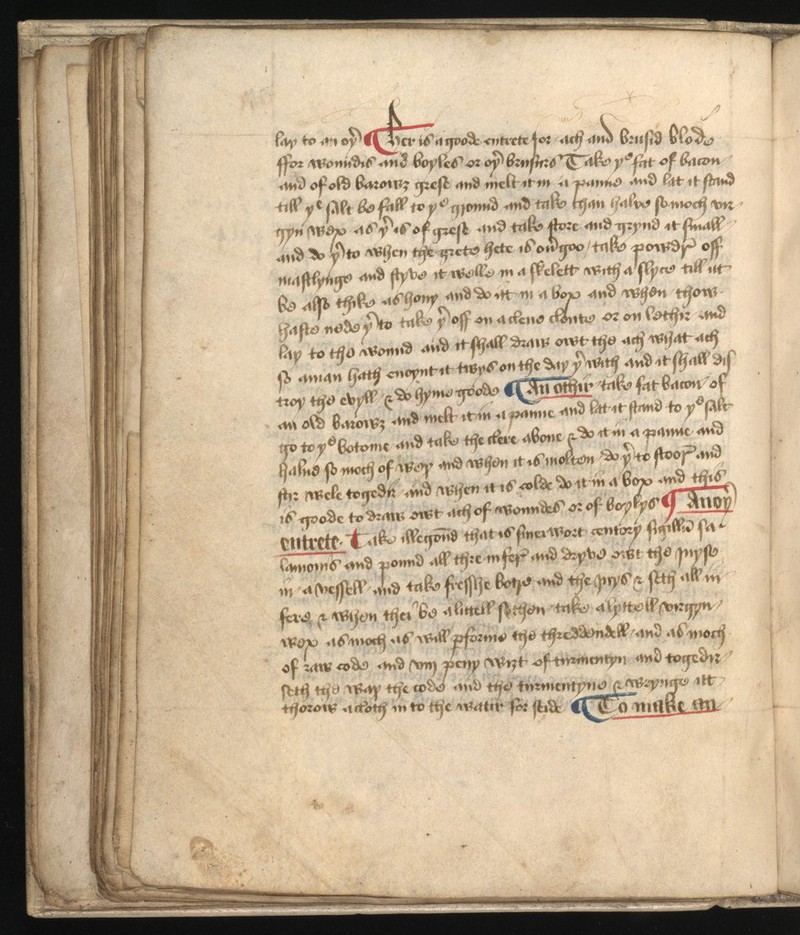 lay to an oþ̉ ¶ Her is a goode entrete for ach and brusid blode
ffor woundis and boyles or oþ̉ brusurs Take yͤ fat of bacon
and of old barowz grese and melt it in a panne and lat it stand
till yͤ salt be fall to yͤ ground and take than halve so moch vir
gyn wex as yͬ is of grese and take store and grynd it small
and do yͬ to when the grete hete is oủgoo take powdr̉ off
mastlynge and styve it welle in a skelett with a slyce till itt
be also thike as hony and do itt in a box and when thow
haste nede yͬ to take yͬ off on a clene cloute or on lethir and
lay to the wound and it shall draw owt the ach what ach
so aman hath enoynt it twys on the day yͬ with and it shall dis
troy the evyll & do hyme goode ¶ An othir take fat bacon of
an old barowz and melt it in a panne and lat it stand to yͤ salt
go to yͤ botome and take the clere above & do it in a panne and
halue so moch of wex and when it is molten do yͬ to stoor̉ and
stir wele togedir and when it is colde do it in a box and this
is goode to draw owt ach of woundes or of boylys ¶ An oỷ
entrete Take that is centory sigillū sa
lamonis and pound all thre in fer̉ and dryve owt the juyse
in a vessell and take fresshe and the juys & seth all in
fere & when thei be a littell sothen take a lyttell virgyn
wex as moch as will ꝑforme the threddendell and as moch
of raw code and viij peny wizt of turmentyn and togedir
seth the wax the code and the turmentyne & wrynge itt
thorow a cloth in to the watir for side ¶ To make an